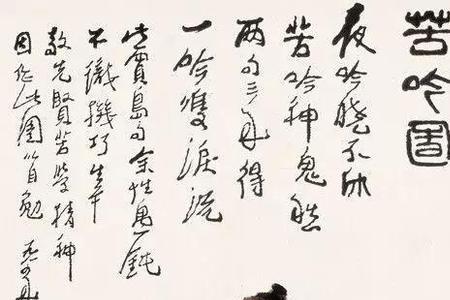 苦吟圖
夜吟曉不休
苦吟神鬼愁
两句三年得
一吟雙淚流
此賈島句余性愚鈍
不識機巧生平
敬先賢苦學精神
因作此圖自勉